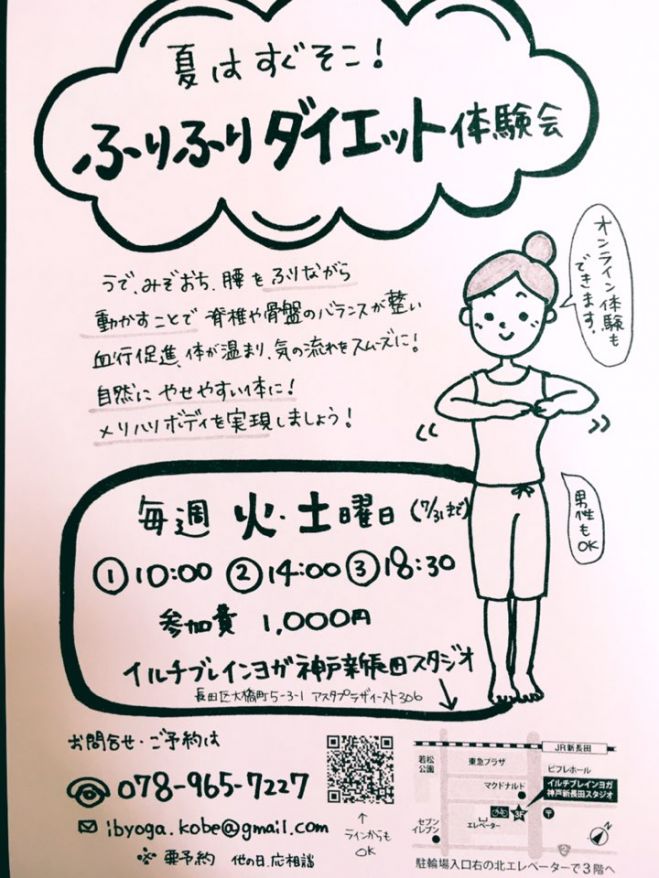 夏はすぐそこ！
ふりふりダイエット体験会
オンライン体験も
できます。
うで、みぞおち、腰をふりながら
動かすことで 脊椎や骨盤のバランスが整い
血行促進、体が温まり、気の流れをスムーズに！
自然に やせやすい体に！
メリハリボディを実現しましょう！
男性も
OK
毎週 火・土曜日 (7/31まで)
①10:00 ②14:00 ③18:30
参加費 1,000円
イルチブレインヨガ神戸新長田スタジオ
長田区大橋町5-3-1 アスタプラザイースト306
お問合せ・ご予約は
078-965-7227
ibyoga.kobe@gmail.com
※要予約 他の日、応相談
↑
ラインからも
OK
JR新長田
若松
公園
東急プラザ
ピフレホール
マクドナルド
イルチブレインヨガ
神戸新長田スタジオ
セブン
イレブン
エレベーター
3F
N
2
駐輪場入口右の北エレベーターで3階へ